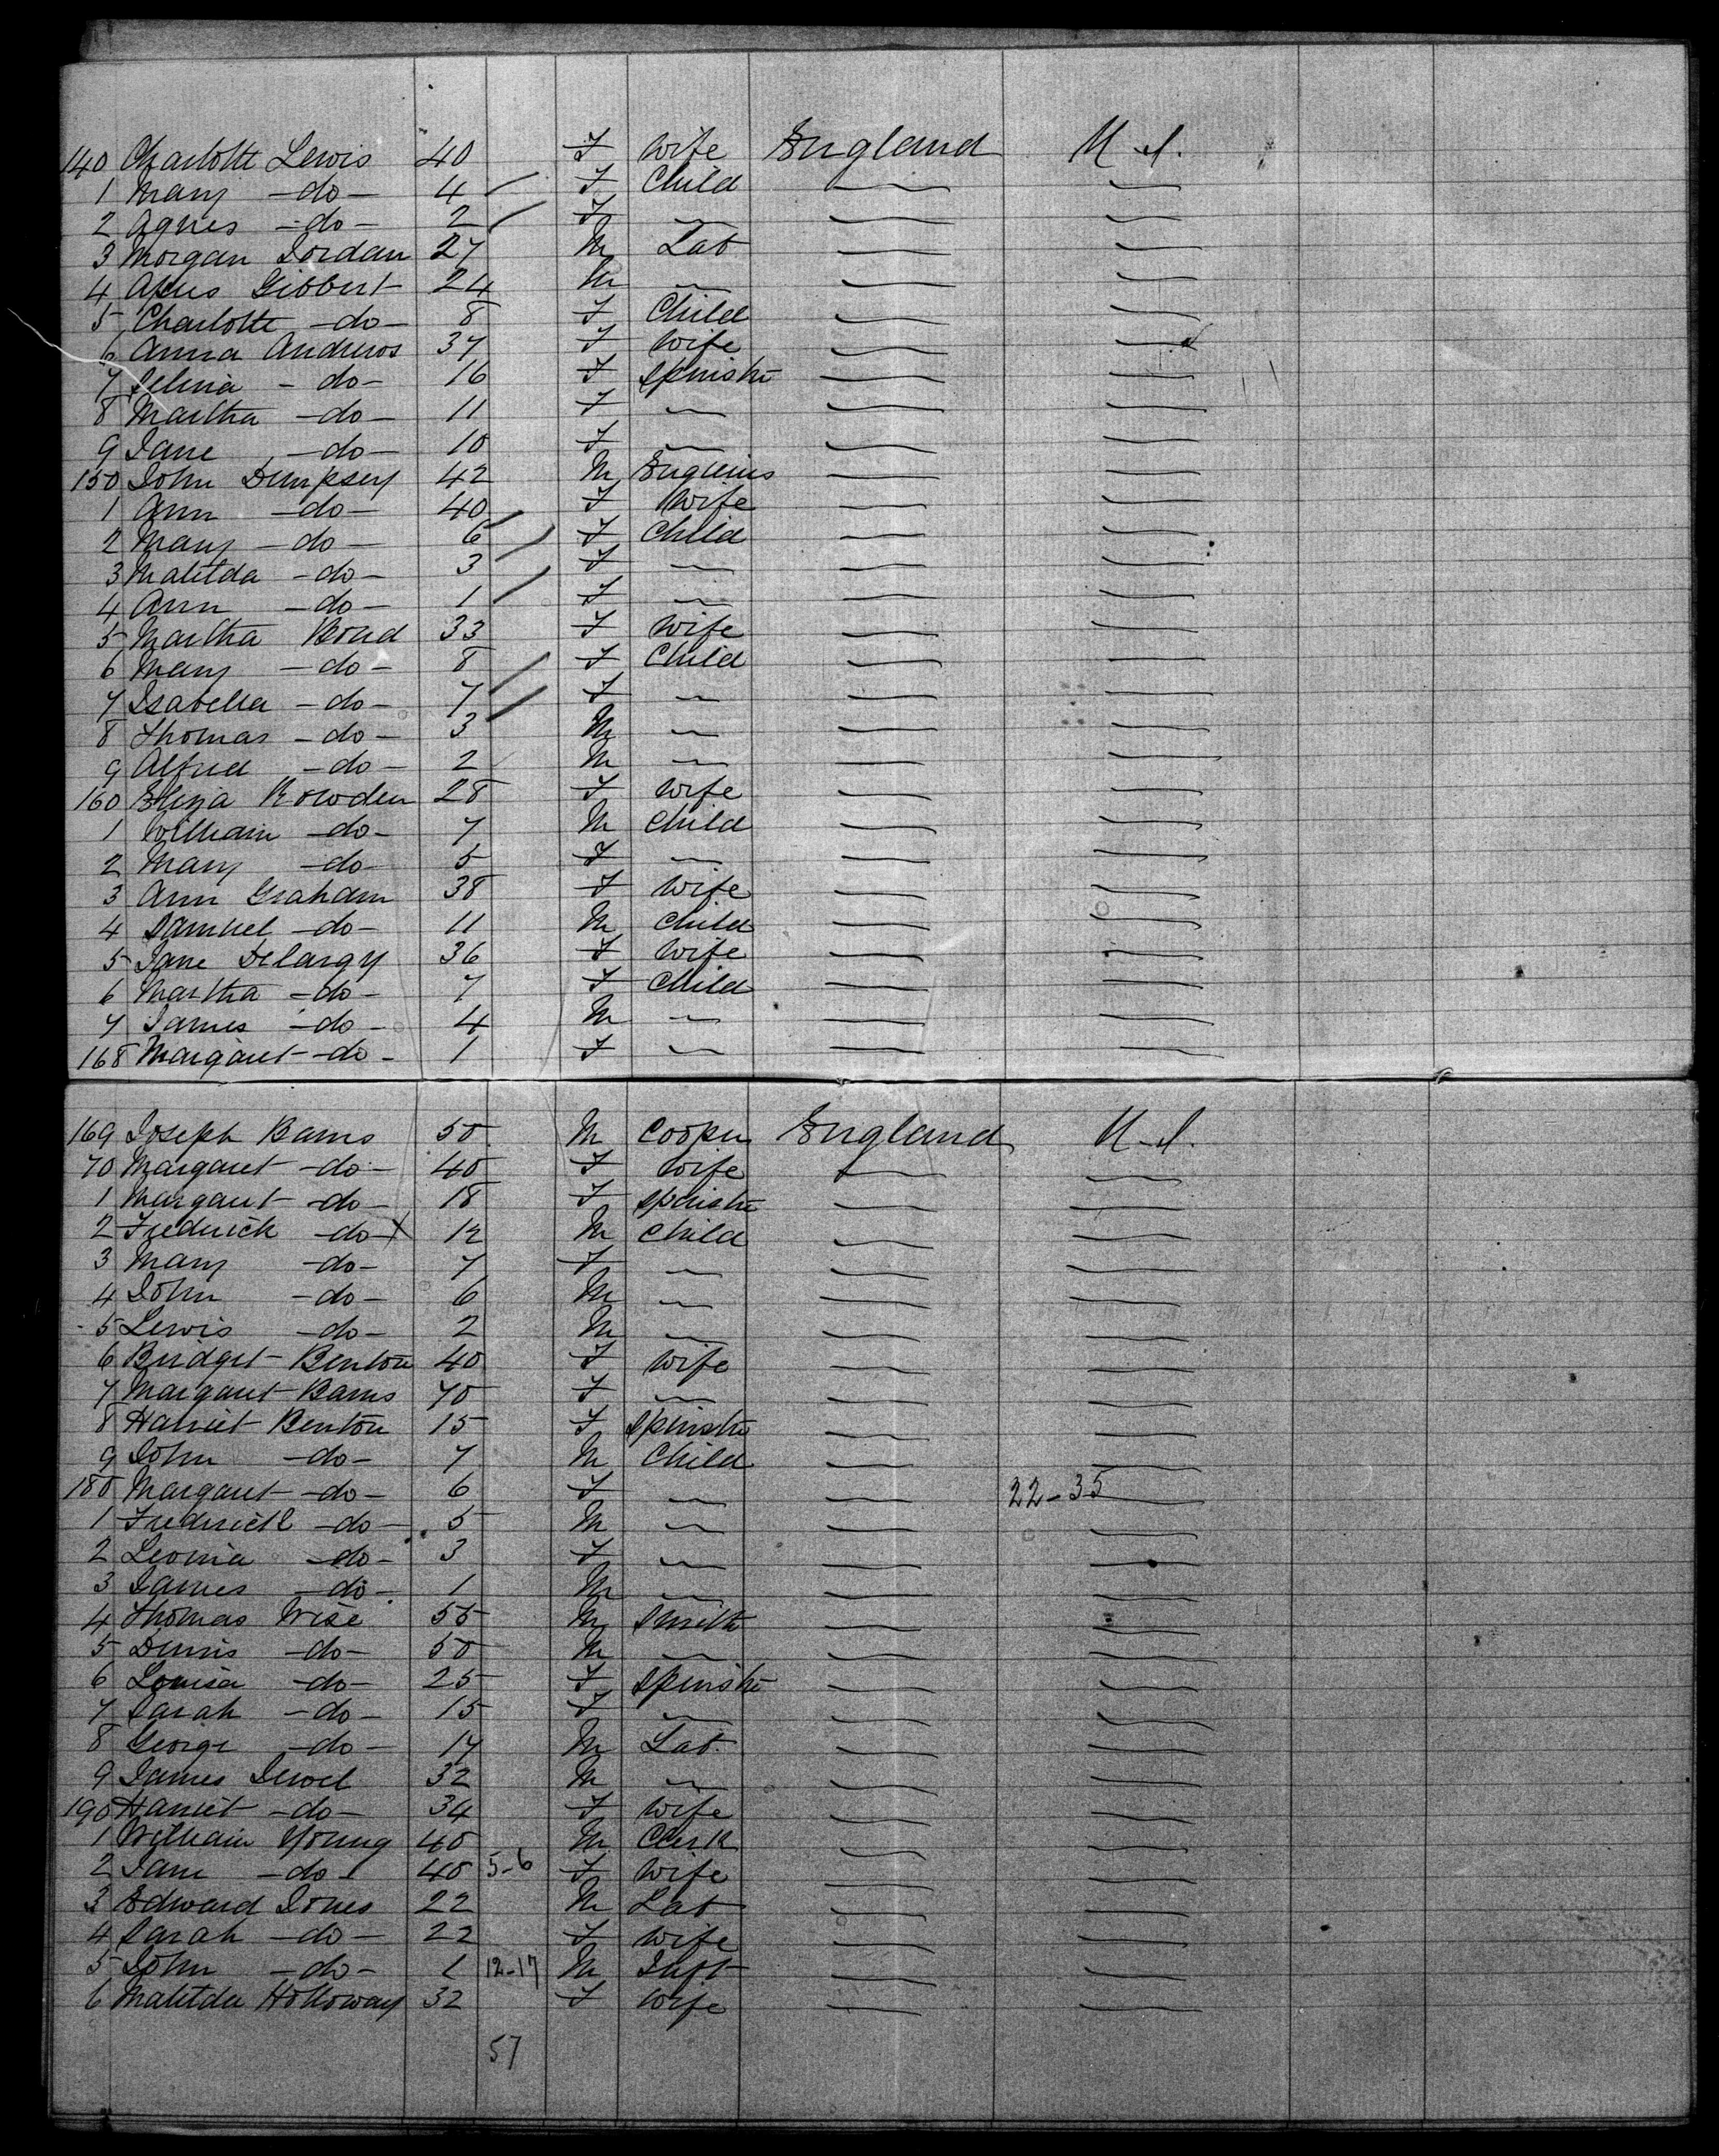 140 Charlotte Lewis 40 F Wife England U.S.
1 Mary -do- 4 F Child
2 Agnes -do- 2 F
3 Morgan Jordan 27 M Lab
4 Gibbert 24 M
5 Charlotte -do- 8 F Child
6 Anna Andrews 37 F Wife
7 Selina -do- 16 F Spinstr
8 Martha -do- 11 F
9 Jane -do- 10 F
150 John Dempsey 42 M
1 Ann -do- 40 F Wife
2 Mary -do- 6 F Child
3 Matilda -do- 3 F
4 Ann -do- 1 F
5 Martha Bond 33 F Wife
6 Mary -do- 8 F Child
7 Isabella -do- 7 F
8 Thomas -do- 3 M
9 Alfred -do- 2 M
160 Eliza Rowden 28 F Wife
1 William -do- 7 M Child
2 Mary -do- 5 F
3 Ann Graham 38 F Wife
4 Samuel -do- 11 M Child
5 Jane Delargy 36 F Wife
6 Martha -do- 7 F Child
7 James -do- 4 M
168 Margaret -do- 1 F
169 Joseph Barns 50 M Cooper England U.S.
70 Margaret -do- 40 F Wife
1 Margaret -do- 18 F Spinstr
2 Frederick -do- X 12 M Child
3 Mary -do- 7 F
4 John -do- 6 M
5 Lewis -do- 2 M
6 Bridget Benton 40 F Wife
7 Margaret Barns 70 F
8 Harriet Benton 15 F Spinstr
9 John -do- 7 M Child
180 Margaret -do- 6 F 22-35
1 Frederick -do- 5 M
2 Leonia -do- 3 F
3 James -do- 1 M
4 Thomas Wise 55 M Smith
5 Dennis -do- 50 M
6 Louisa -do- 25 F Spinstr
7 Sarah -do- 15 F
8 George -do- 17 M Lab.
9 James Jewel 32 M
190 Harriet -do- 34 F Wife
1 William Young 40 M Clerk
2 Jane -do- 40 5-6 F Wife
3 Edward Jones 22 M Lab
4 Sarah -do- 22 F Wife
5 John -do- 1 12-17 M Inft
6 Matilda Holloway 32 F Wife
57